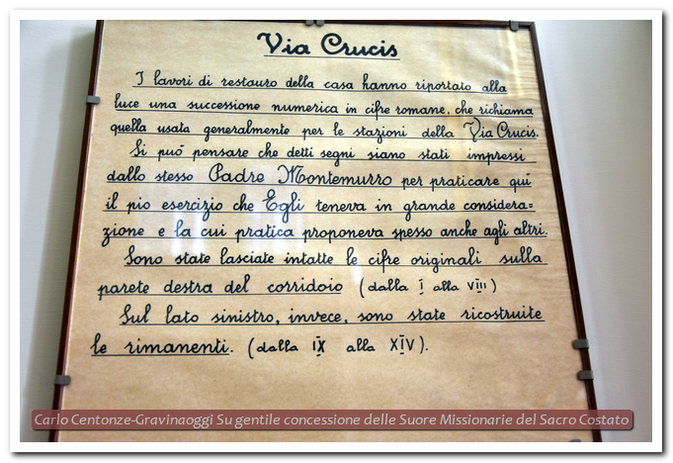 Via Crucis
I lavori di restauro della casa hanno riportato alla
luce una successione numerica in cifre romane, che richiama
quella usata generalmente per le stazioni della Via Crucis.
Si può pensare che detti segni siano stati impressi
dallo stesso Padre Montemurro per praticare quì
il pio esercizio che Egli teneva in grande considera=
zione e la cui pratica proponeva spesso anche agli altri.
Sono state lasciate intatte le cifre originali sulla
parete destra del corridoio (dalla I alla VIII)
Sul lato sinistro, invece, sono state ricostruite
le rimanenti. (dalla IX alla XIV).
Carlo Centonze-Gravinaoggi Su gentile concessione delle Suore Missionarie del Sacro Costato